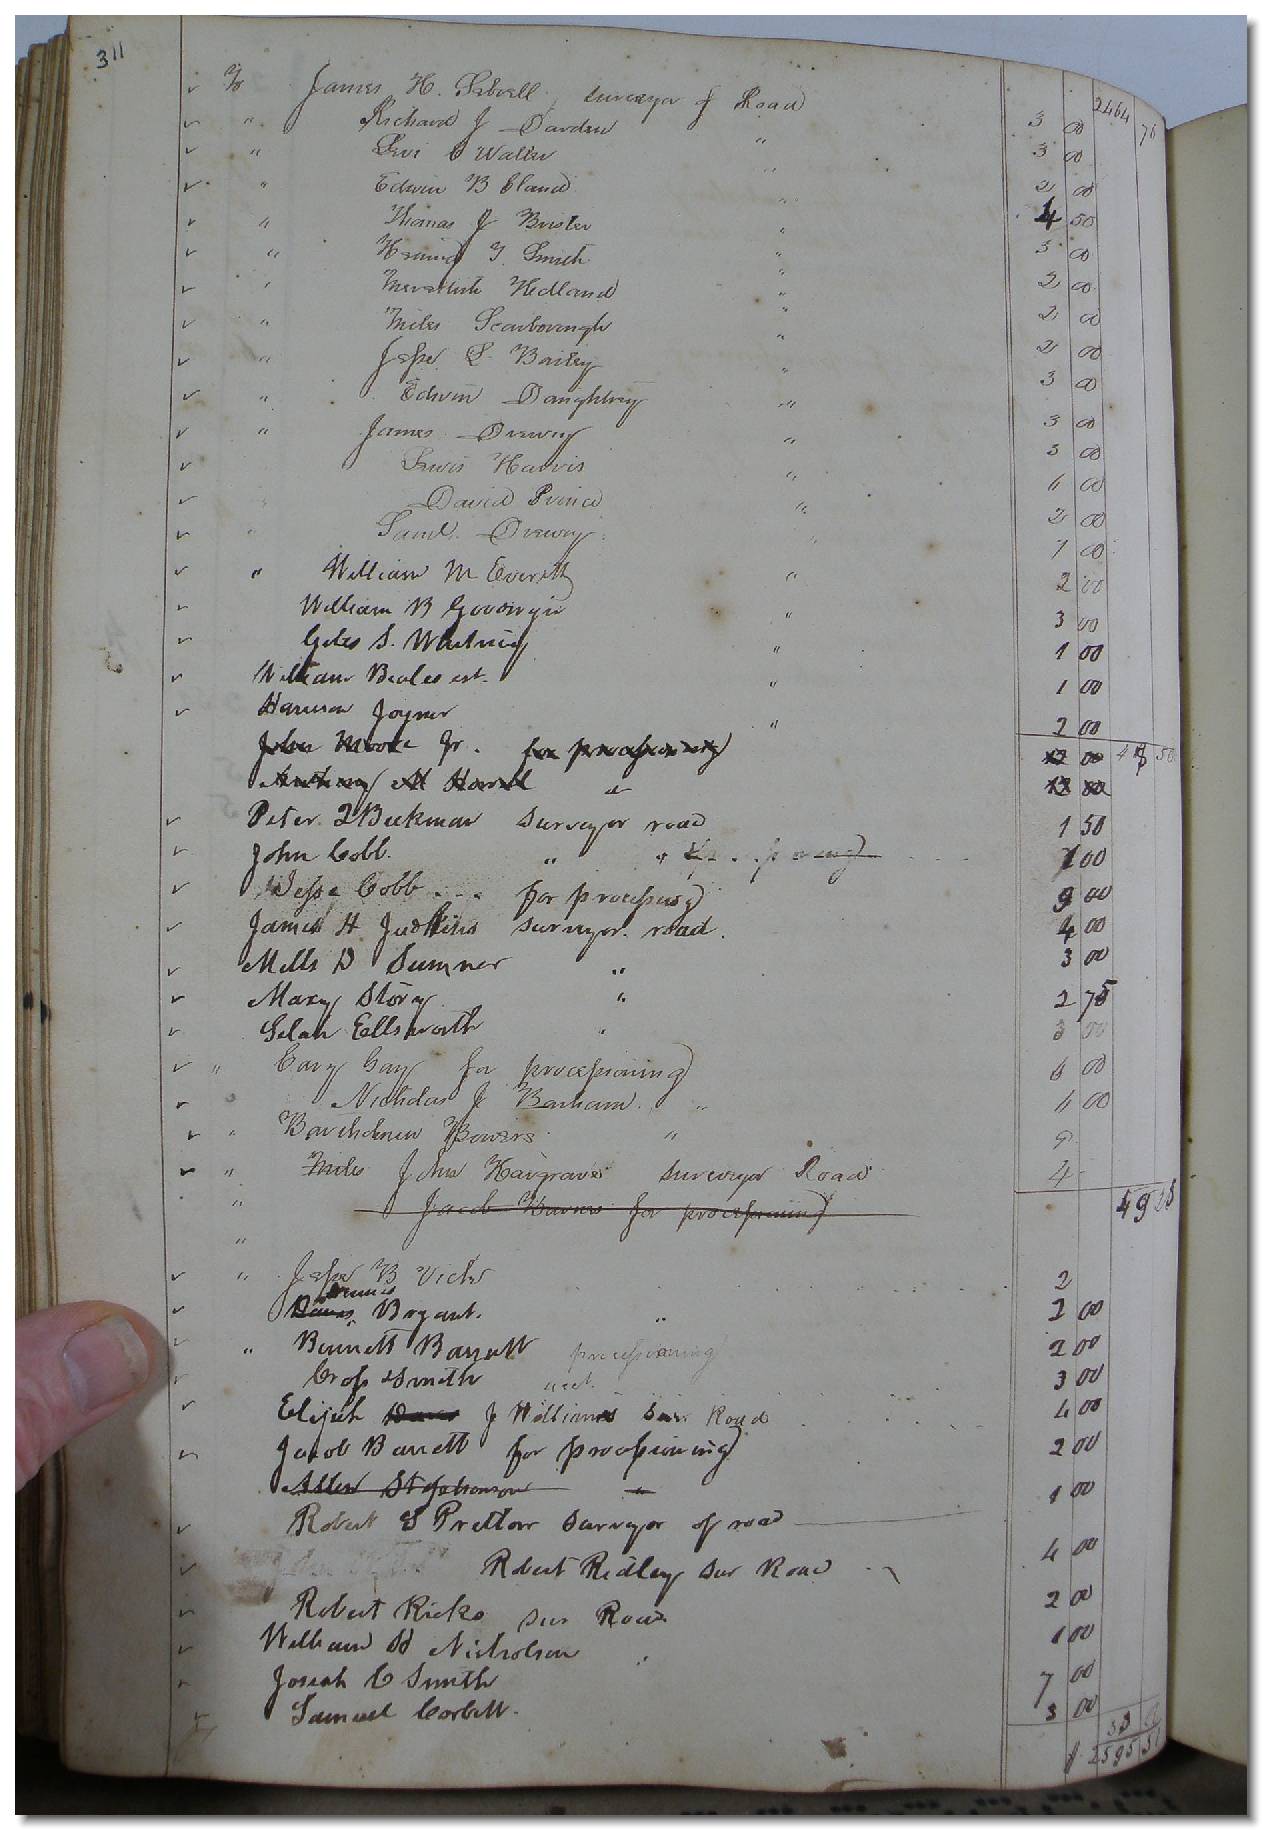 311
James H. Sebrell, surveyor of Road 2464 76
" Richard J Darden " 3 00
" Levi C Waller " 3 00
" Edwin B Eland " 2 00
" Thomas J Brister " 4 50
" T. Smith " 3 00
" Meredith Hedland " 2 00
" Miles Scarborough " 2 00
" Jesse L. Bailey " 2 00
" Edwin Daughtrey " 3 00
" James Drewry " 3 00
Lewis Harris " 3 00
David Prince " 6 00
" Saml. Drewry " 2 00
" William M Everett " 7 00
William B Goodwyn " 2 00
Giles S. Whitney " 3 00
William Beales est. " 1 00
Harrison Joyner " 1 00
2 00
John Moore Jr. for processioning 12 00 50
Harrell " 00
Peter Beekman surveyor road 1 50
John Cobb. " " 00
Jesse Cobb for processing 9 00
James H Judkins surveyor. road. 4 00
Mills D Sumner " 3 00
Mary Story " 2 75
Selah Ellsworth " 3 00
" Cary Gay for processioning 6 00
" Nicholas J Barham. " 6 00
" Barthelmew Bowers " 9
" Miles John Hargrave surveyor Road 4
" Jacob for processioning 49 25
"
" Jesse B Vick 2
Dennis
Bryant. " 2 00
" Bennett Barrett processioning 2 00
Cross Smith 3 00
Elijah J Williams Sur. Road 4 00
Jacob Barrett for processioning 2 00
Allen Stephenson 1 00
Robert S Pretlow Surveyor of road
Robert Ridley sur Road 4 00
Robert Ricks sur Road 2 00
William H Nicholson " 1 00
Josiah C Smith 7 00
Samuel Corbitt. 3 00
33
2595 51